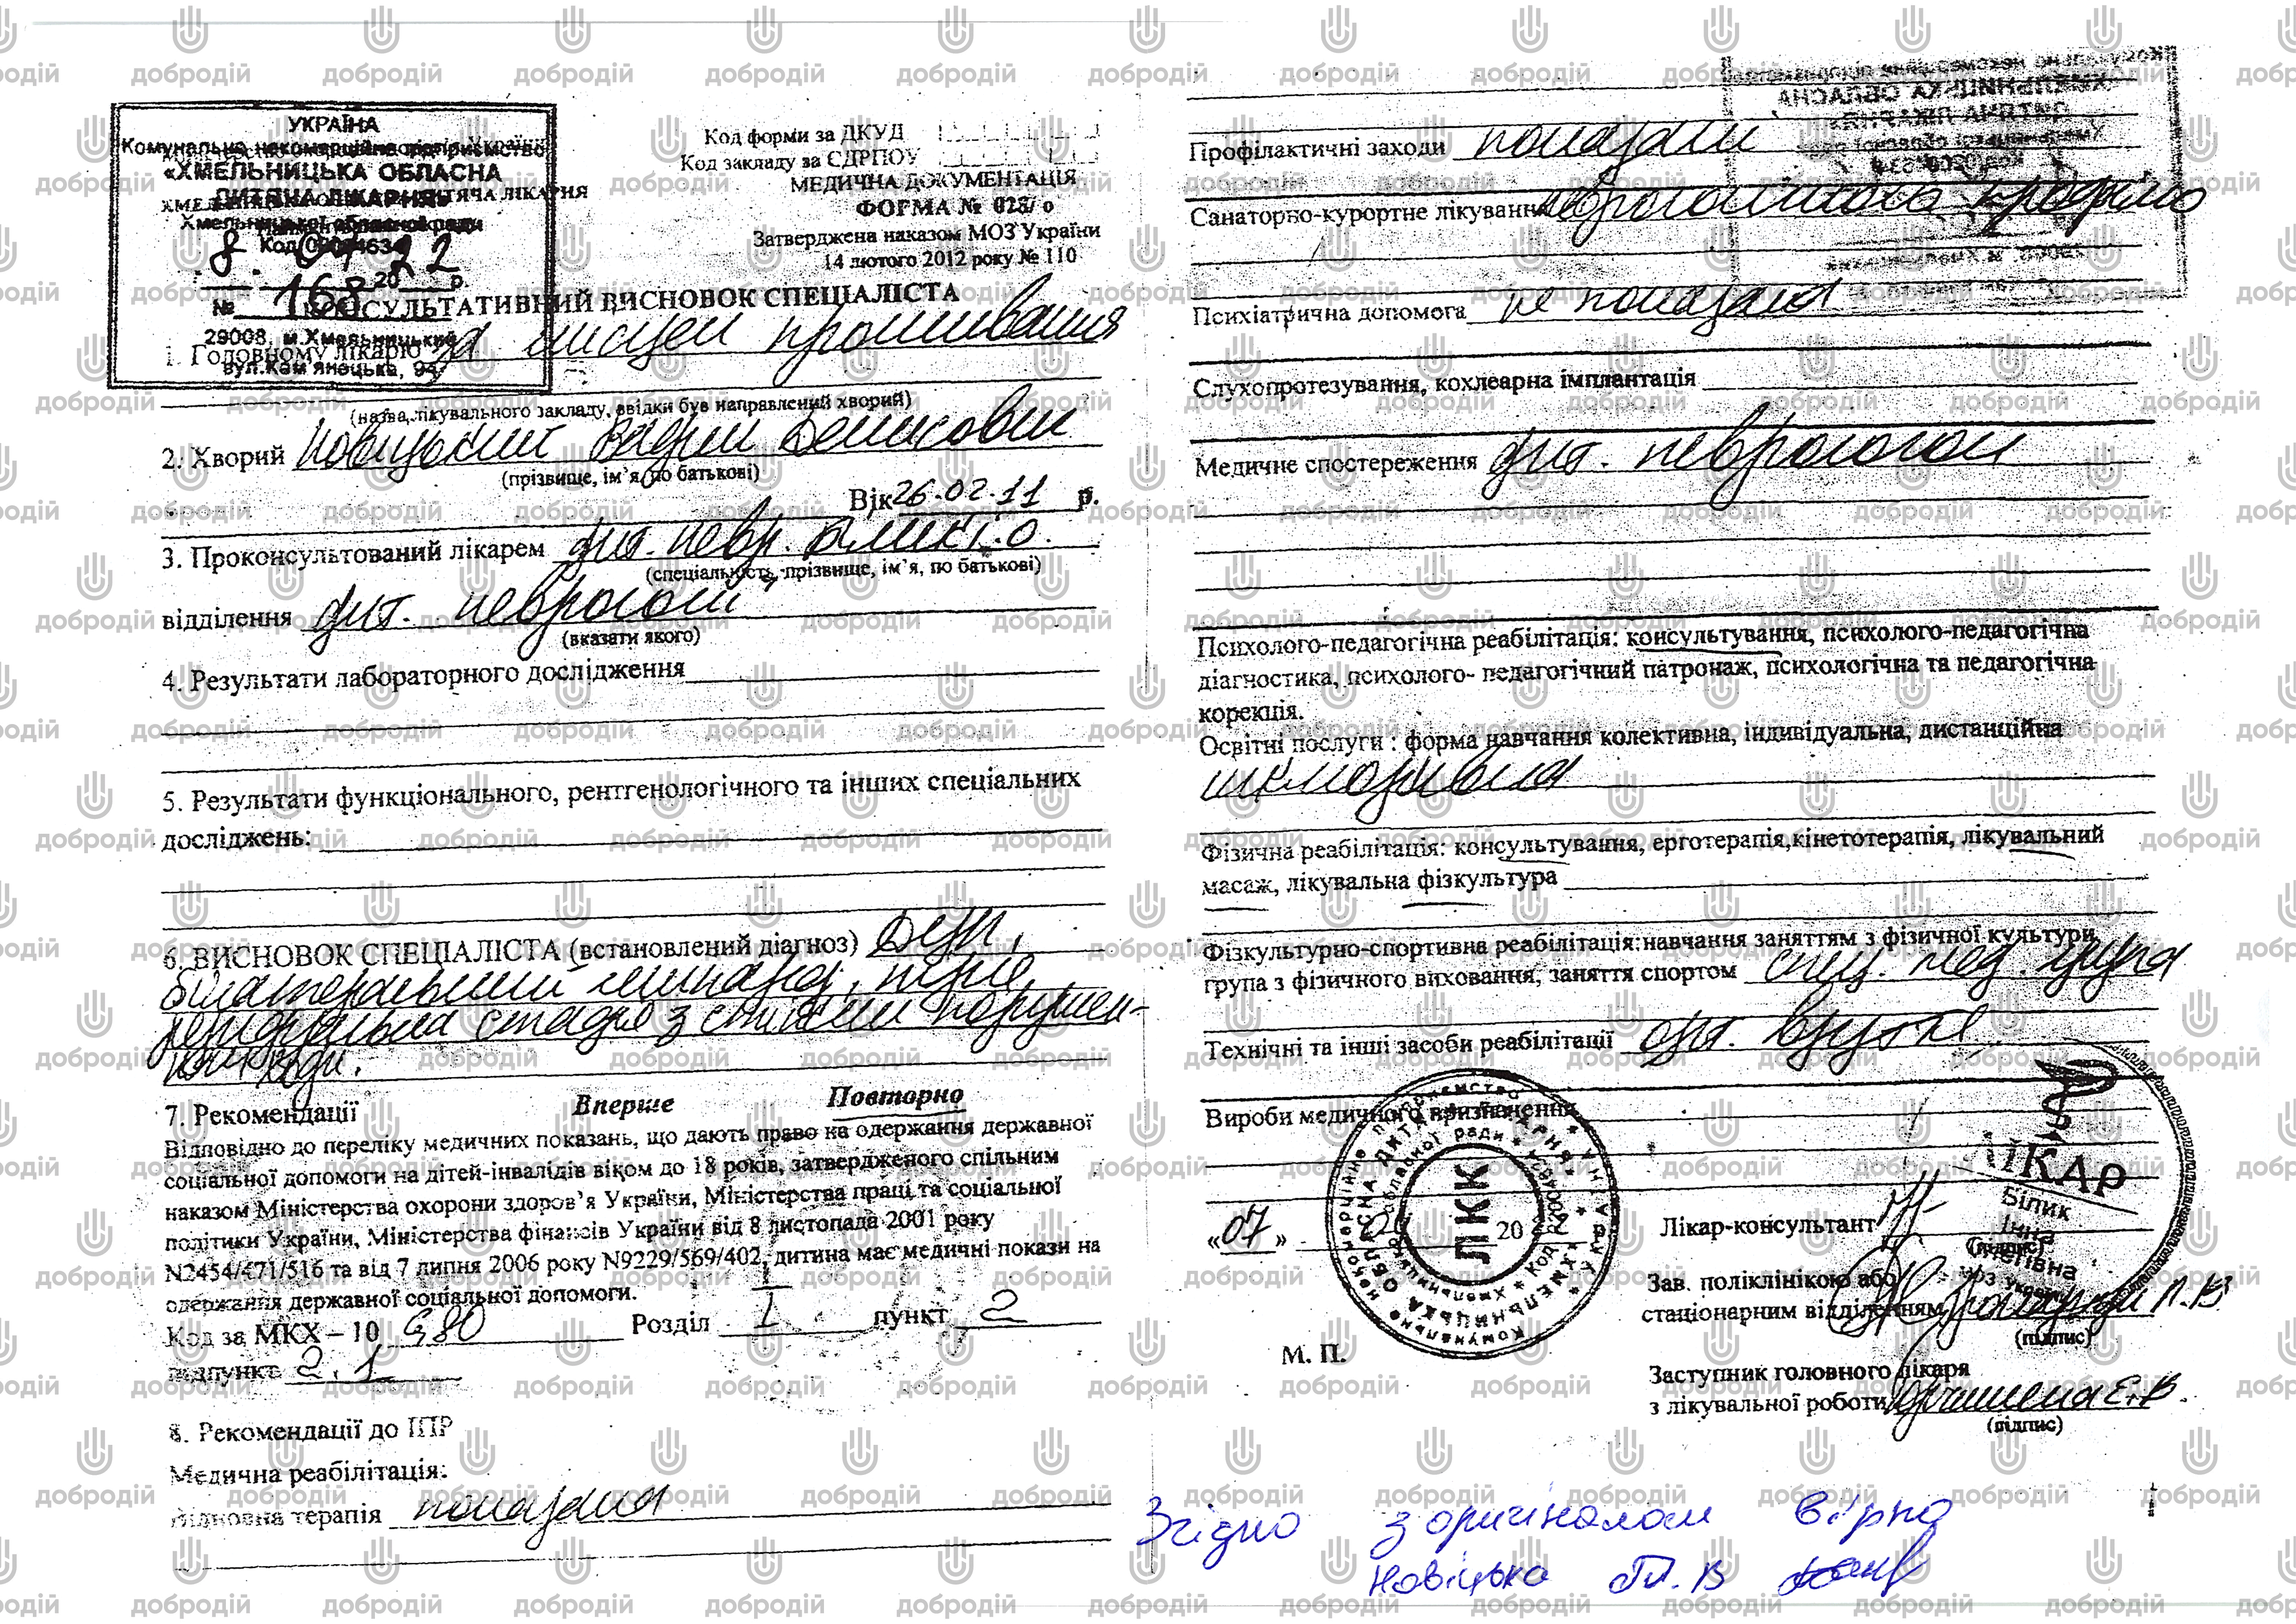 УКРАЇНА
Комунальне некомерційне підприємство
«ХМЕЛЬНИЦЬКА ОБЛАСНА
ДИТЯЧА ЛІКАРНЯ»
Хмельницької обласної ради
Код
8 22
20 р.
№ 168
29008, м.Хмельницький
вул.Кам'янецька, 94
Код форми за ДКУД
Код закладу за ЄДРПОУ
МЕДИЧНА ДОКУМЕНТАЦІЯ
ФОРМА № 028/ о
Затверджена наказом МОЗ України
14 лютого 2012 року № 110
КОНСУЛЬТАТИВНИЙ ВИСНОВОК СПЕЦІАЛІСТА
1. Головному лікарю за місцем проживання
(назва лікувального закладу, звідки був направлений хворий)
2. Хворий Новіцький Денисович
(прізвище, ім'я, по батькові)
Вік 26.02.11 р.
3. Проконсультований лікарем дит. невр. Білик І.О.
(спеціальність, прізвище, ім'я, по батькові)
відділення дит. неврології
(вказати якого)
4. Результати лабораторного дослідження
5. Результати функціонального, рентгенологічного та інших спеціальних
досліджень:
6. ВИСНОВОК СПЕЦІАЛІСТА (встановлений діагноз) ДЦП,
білатеральний пізня
резидуальна стадія з стійкими порушен-
ходи.
7. Рекомендації Вперше Повторно
Відповідно до переліку медичних показань, що дають право на одержання державної
соціальної допомоги на дітей-інвалідів віком до 18 років, затвердженого спільним
наказом Міністерства охорони здоров'я України, Міністерства праці та соціальної
політики України, Міністерства фінансів України від 8 листопада 2001 року
N2454/471/516 та від 7 липня 2006 року N9229/569/402, дитина має медичні покази на
одержання державної соціальної допомоги.
Код за МКХ – 10 G80 Розділ I пункт 2
підпункт 2.1
8. Рекомендації до ІПР
Медична реабілітація:
Відновна терапія показана
Профілактичні заходи показані
Санаторно-курортне лікування неврологічного профілю
Психіатрична допомога не показана
Слухопротезування, кохлеарна імплантація
Медичне спостереження дит. неврологом
Психолого-педагогічна реабілітація: консультування, психолого-педагогічна
діагностика, психолого- педагогічний патронаж, психологічна та педагогічна
корекція.
Освітні послуги : форма навчання колективна, індивідуальна, дистанційна
інклюзивна
Фізична реабілітація: консультування, ерготерапія,кінетотерапія, лікувальний
масаж, лікувальна фізкультура
Фізкультурно-спортивна реабілітація:навчання заняттям з фізичної культури,
група з фізичного виховання, заняття спортом спец. мед. група
Технічні та інші засоби реабілітації орт. взуття
Вироби медичного призначення
«07» 20
ЛКК
Лікар-консультант
(підпис)
ЛІКАР
Білик
Інна
Зав. поліклінікою або
стаціонарним відділенням
(підпис)
М. П.
Заступник головного лікаря
з лікувальної роботи
(підпис)
Згідно з оригіналом вірно
Новіцька
добродій